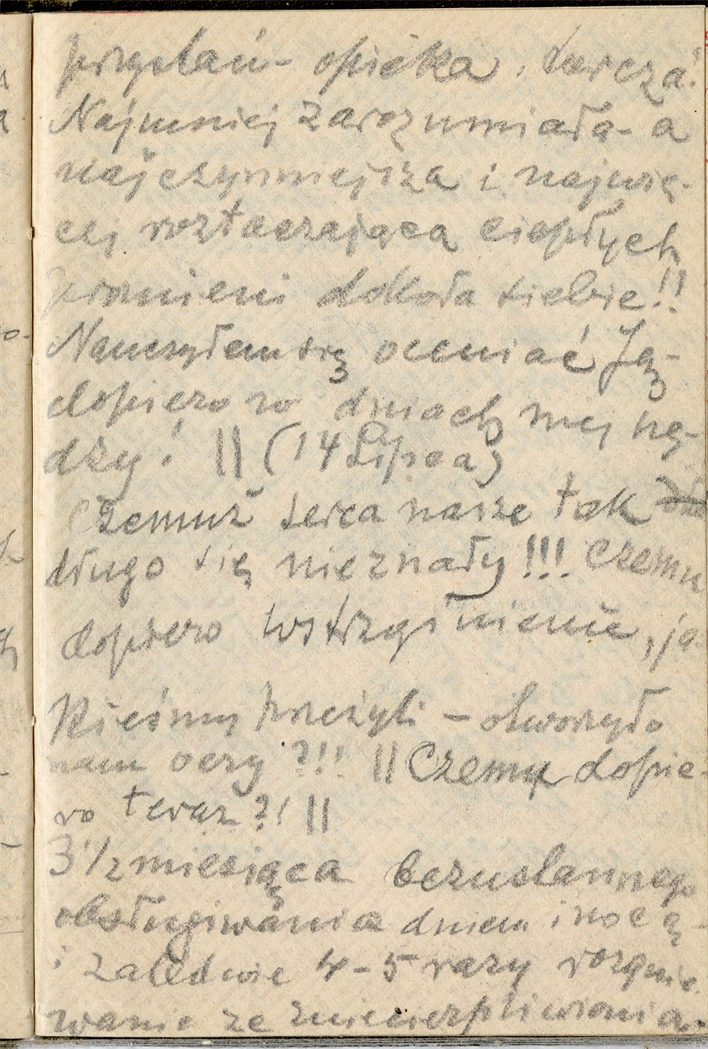 przystań – opieka, tarcza!
Najmniej zarozumiała – a
najczynniejsza i najwię-
cej roztaczająca ciepłych
promieni dokoła siebie!!
Nauczyłem się oceniać Ją –
dopiero w dniach mej nę-
dzy! || (14 Lipca)
Czemuż serca nasze tak
długo się nieznały!!! Czemu
dopiero wstrząśnienie, ja
kieśmy przeżyli – otworzyło
nam oczy?!! || Czemu dopie-
ro teraz?! ||
3 1/2 miesiąca bezustannego
obsługiwania dniem i nocą –
i zaledwie 4–5 razy rozgnie
wanie ze zniecierpliwienia.